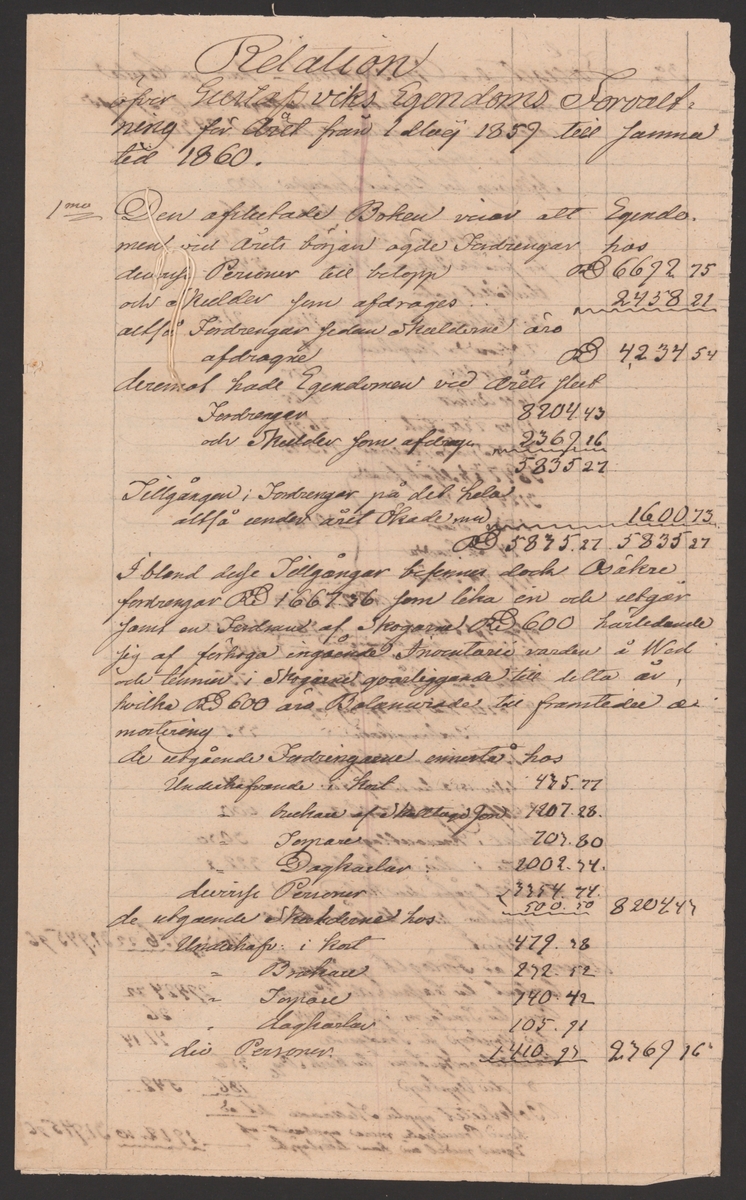 Relation
öfver Gustafsviks Egendoms Förvalt-
ning för Året från 1 Maij 1859 till samma
tid 1860.
1mo Den afslutade Boken visar att Egendo-
men vid Årets början ägde Fordrengar hos
diverse Personer till belopp RD 6692 75
och skulder som afdrages 2458 21
altså Fordrengar sedan skulderne äro
afdragne RD 4234 54
deremot hade Egendomen vid Årets slut
Fordrengar 8204.43
och skulder som afdrages 2369 16
5835 27
Tillgången i Fordrengar på det hela
altså under året Ökade med 1600 73
RD 5835.27 5835 27
Ibland desse Tillgångar befinnes dock Osäkre
fordrengar RD 1667 36 som lika en och utgör
samt en Fordran af Skogarne RD 600 härledande
sig af förhöga ingående Inventarie värden å Wed
och timmer i Skogarne qvarliggande till detta år,
hvilka RD 600 äro Balancerade till framtida a-
mortering
de utgående Fordringarne hos
Underhafvande i kort 435.77
brukare af Jord 1207.28.
Torpare 703.80
Dagkarlar 2002.34.
diverse Personer 3354.74
500.50 8204 43
de utgående Skulderne hos
Underhaf: i kort 479.38
" Brukare 232.52
" Torpare 140.42
" dagkarlar 105.91
div Personer 1410.93 2369 16